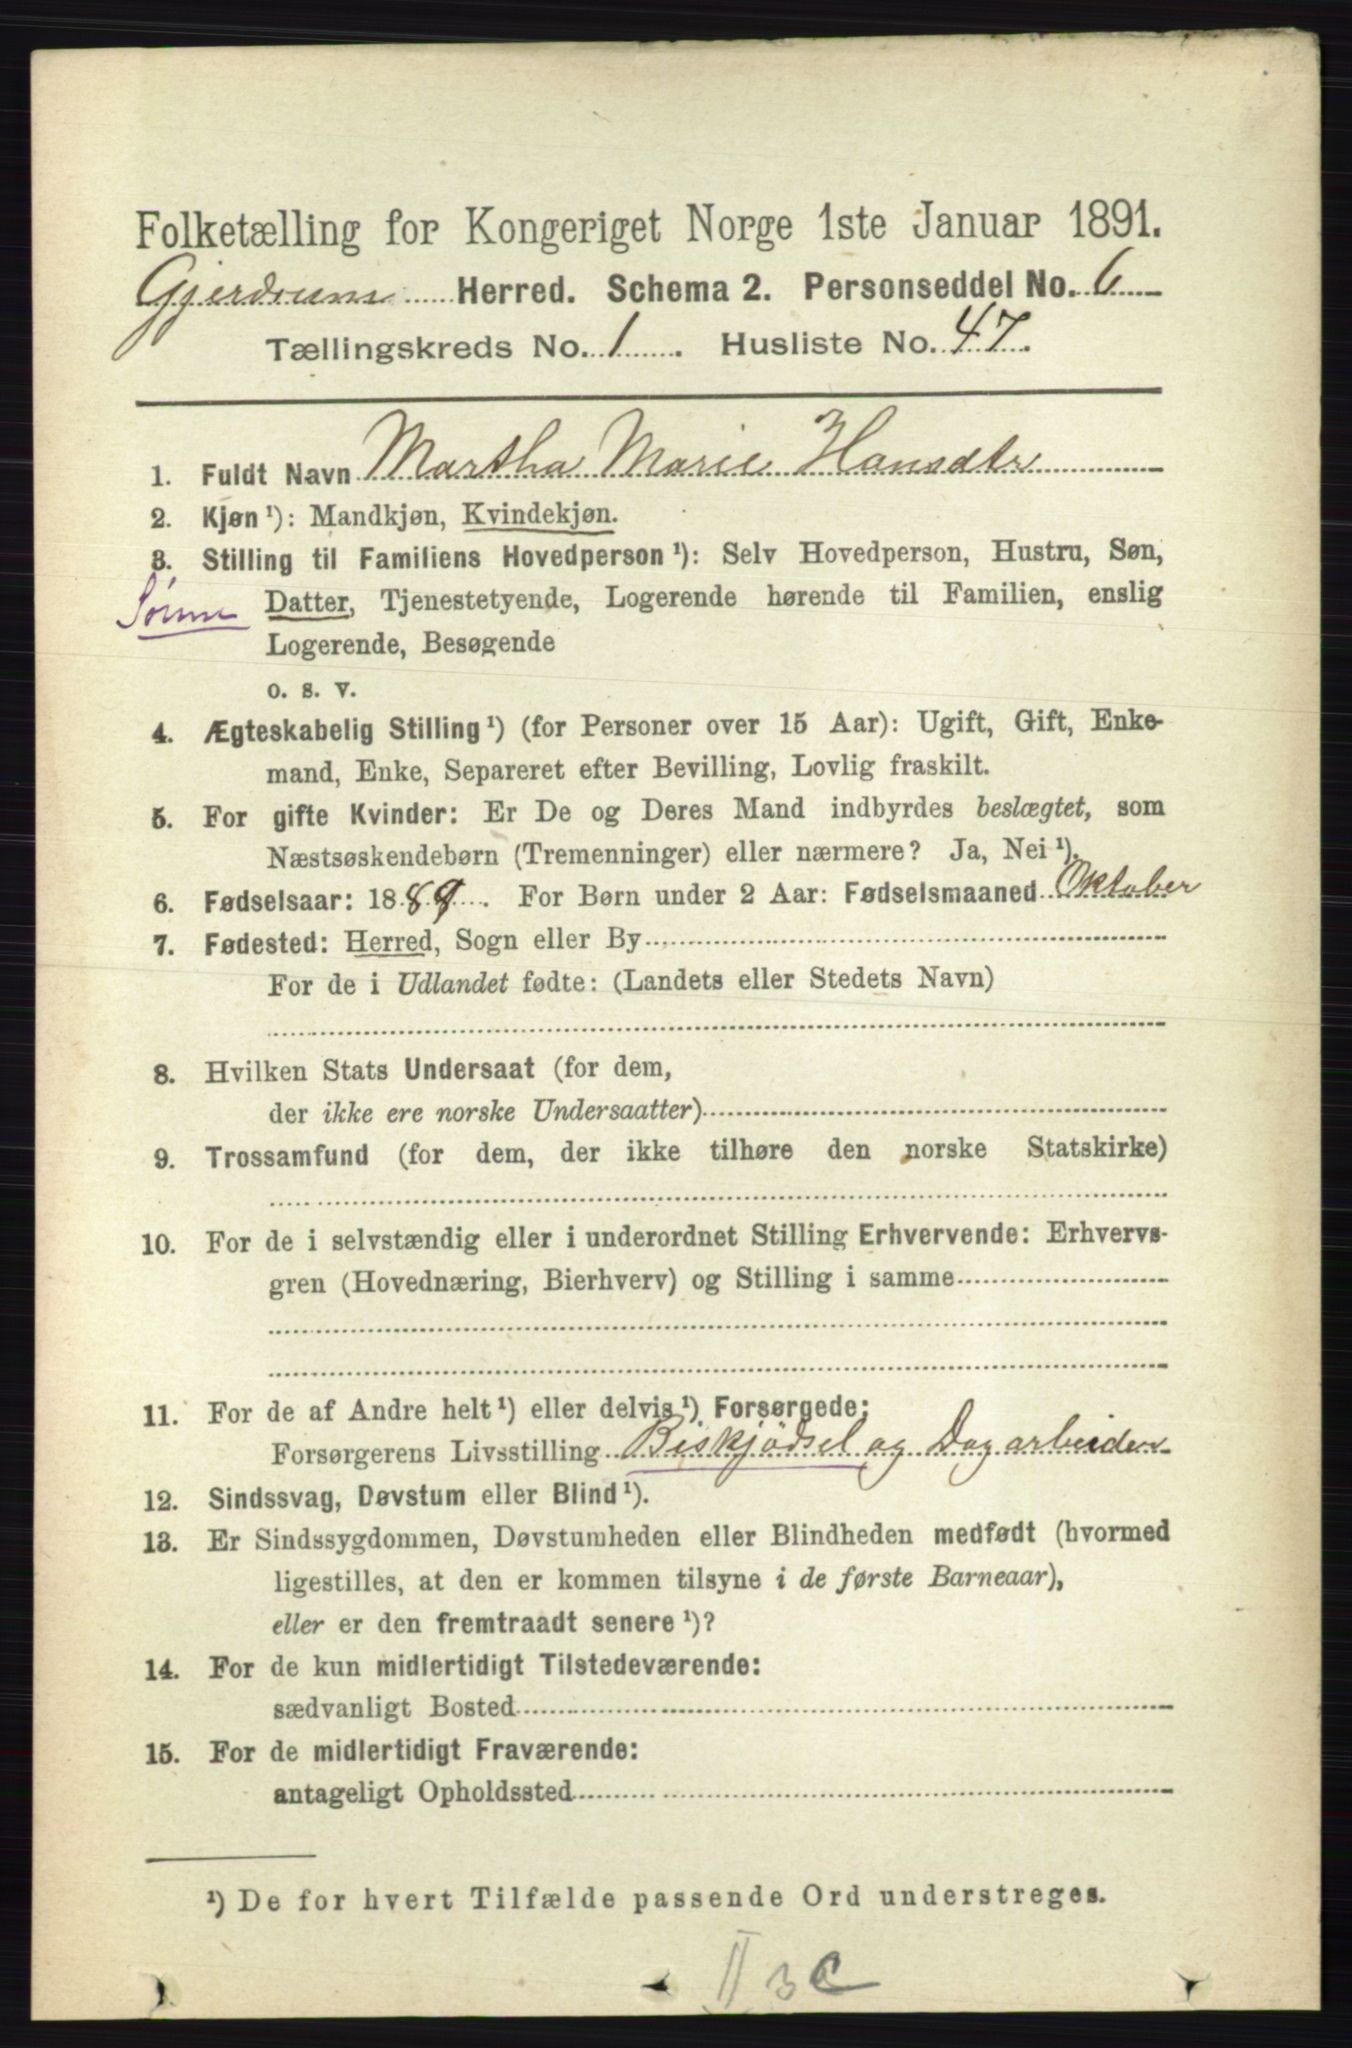 Folketælling for Kongeriget Norge 1ste Januar 1891.
Gjerdrum Herred. Schema 2. Personseddel No. 6
Tællingskreds No. 1. Husliste No. 47.
1. Fuldt Navn Martha Marie Hansdtr
2. Kjøn ¹): Mandkjøn, Kvindekjøn.
3. Stilling til Familiens Hovedperson ¹): Selv Hovedperson, Hustru, Søn,
Datter, Tjenestetyende, Logerende hørende til Familien, enslig
Logerende, Besøgende
o. s. v.
4. Ægteskabelig Stilling ¹) (for Personer over 15 Aar): Ugift, Gift, Enke-
mand, Enke, Separeret efter Bevilling, Lovlig fraskilt.
5. For gifte Kvinder: Er De og Deres Mand indbyrdes beslægtet, som
Næstsøskendebørn (Tremenninger) eller nærmere? Ja, Nei ¹).
6. Fødselsaar: 1889. For Børn under 2 Aar: Fødselsmaaned Oktober
7. Fødested: Herred, Sogn eller By
For de i Udlandet fødte: (Landets eller Stedets Navn)
8. Hvilken Stats Undersaat (for dem,
der ikke ere norske Undersaatter)
9. Trossamfund (for dem, der ikke tilhøre den norske Statskirke)
10. For de i selvstændig eller i underordnet Stilling Erhvervende: Erhvervs-
gren (Hovednæring, Bierhverv) og Stilling i samme
11. For de af Andre helt ¹) eller delvis ¹) Forsørgede:
Forsørgerens Livsstilling Biskjödsel og Dagarbeider
12. Sindssvag, Døvstum eller Blind ¹).
13. Er Sindssygdommen, Døvstumheden eller Blindheden medfødt (hvormed
ligestilles, at den er kommen tilsyne i de første Barneaar),
eller er den fremtraadt senere ¹)?
14. For de kun midlertidigt Tilstedeværende:
sædvanligt Bosted
15. For de midlertidigt Fraværende:
antageligt Opholdssted
¹) De for hvert Tilfælde passende Ord understreges.
II 3 C